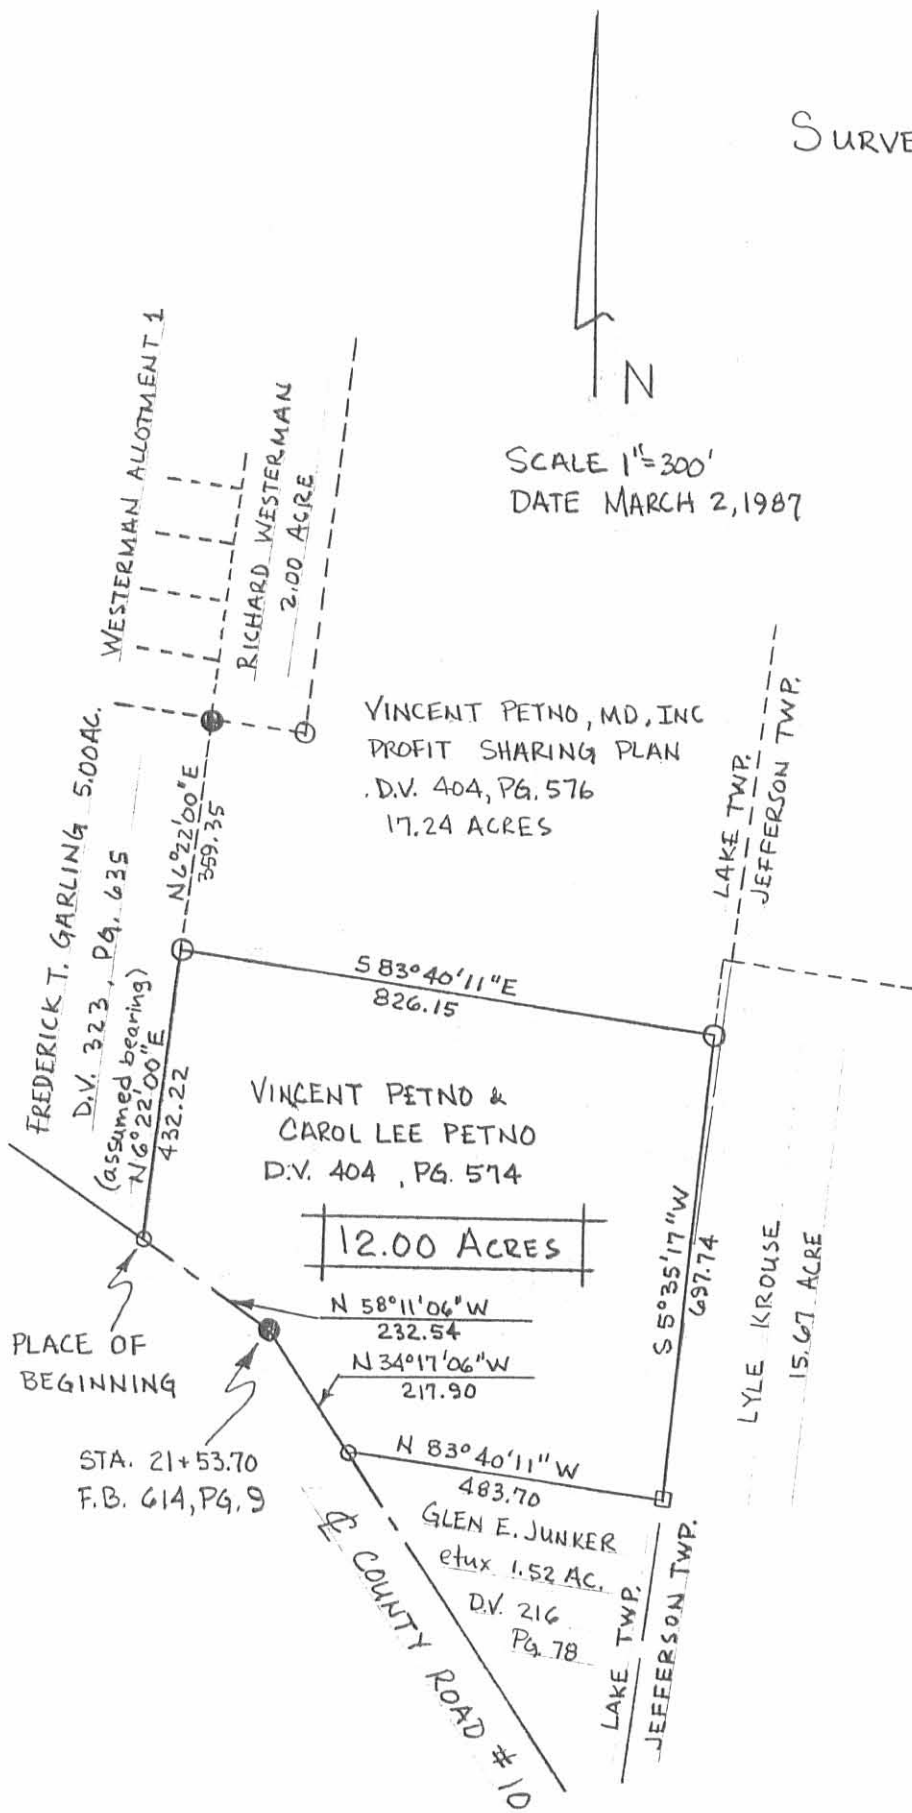 SURVE
N
SCALE 1"=300'
DATE MARCH 2, 1987
WESTERMAN ALLOTMENT 1
RICHARD WESTERMAN
2.00 ACRE
VINCENT PETNO, MD, INC
PROFIT SHARING PLAN
D.V. 404, PG. 576
17.24 ACRES
LAKE TWP.
JEFFERSON TWP.
FREDERICK T. GARLING 5.00AC.
D.V. 323, PG. 635
N6°22'00"E
359.35
(assumed bearing)
N6°22'00"E
432.22
S 83°40'11"E
826.15
VINCENT PETNO &
CAROL LEE PETNO
D.V. 404, PG. 574
12.00 ACRES
S 5°35'17"W
697.74
LYLE KROUSE
15.67 ACRE
N 58°11'06"W
232.54
N 34°17'06"W
217.90
PLACE OF
BEGINNING
STA. 21+53.70
F.B. 614, PG. 9
N 83°40'11"W
483.70
GLEN E. JUNKER
etux 1.52 AC.
D.V. 216
PG. 78
℄ COUNTY ROAD #10
LAKE TWP.
JEFFERSON TWP.